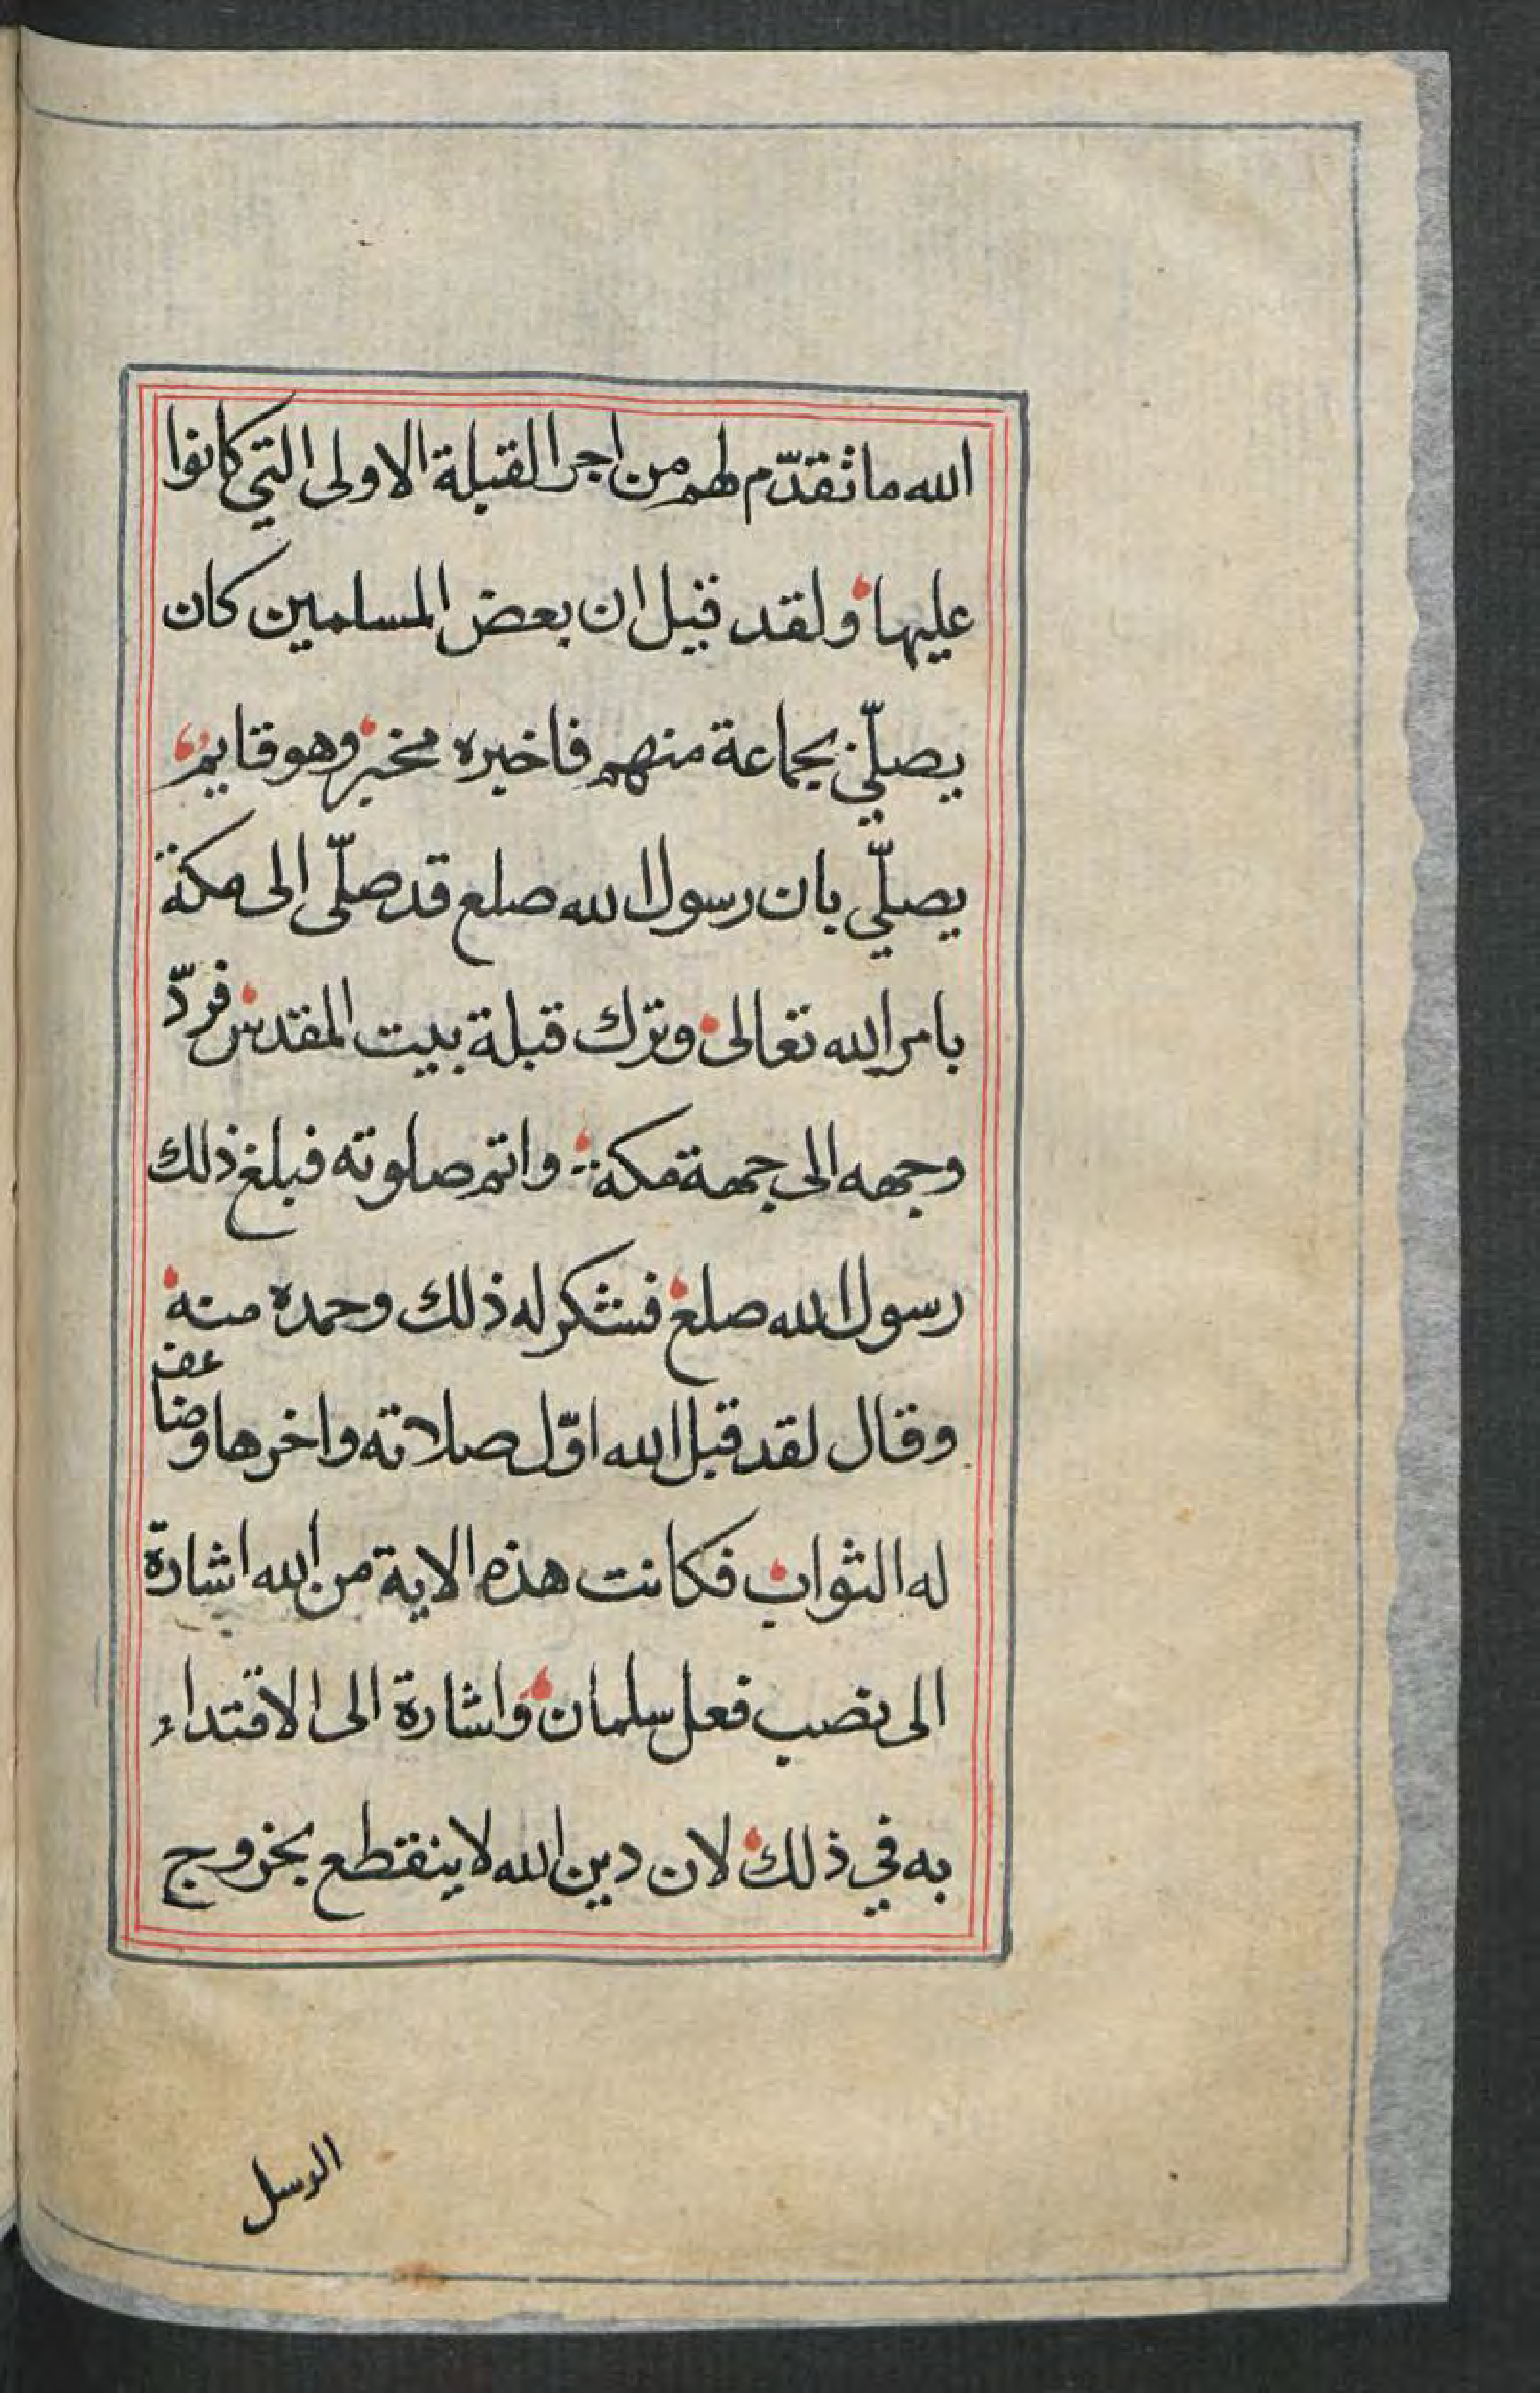 الله ما تقدّم لهم من اجر القبلة الاولى التي كانوا
عليها ولقد قيل ان بعض المسلمين كان
يصلّي بجماعة منهم فاخبره مخبر وهو قايم
يصلّي بان رسول الله صلع قد صلّى الى مكة
بامر الله تعالى وترك قبلة بيت المقدس فردّ
وجهه الى جهة مكة واتم صلوته فبلغ ذلك
رسول الله صلع فشكر له ذلك وحمده منه
وقال لقد قبل الله اوّل صلاته واخرها وضاعف
له الثواب فكانت هذه الاية من الله اشارة
الى نصب فعل سلمان واشارة الى الاقتداء
به في ذلك لان دين الله لا ينقطع بخروج
الرسل